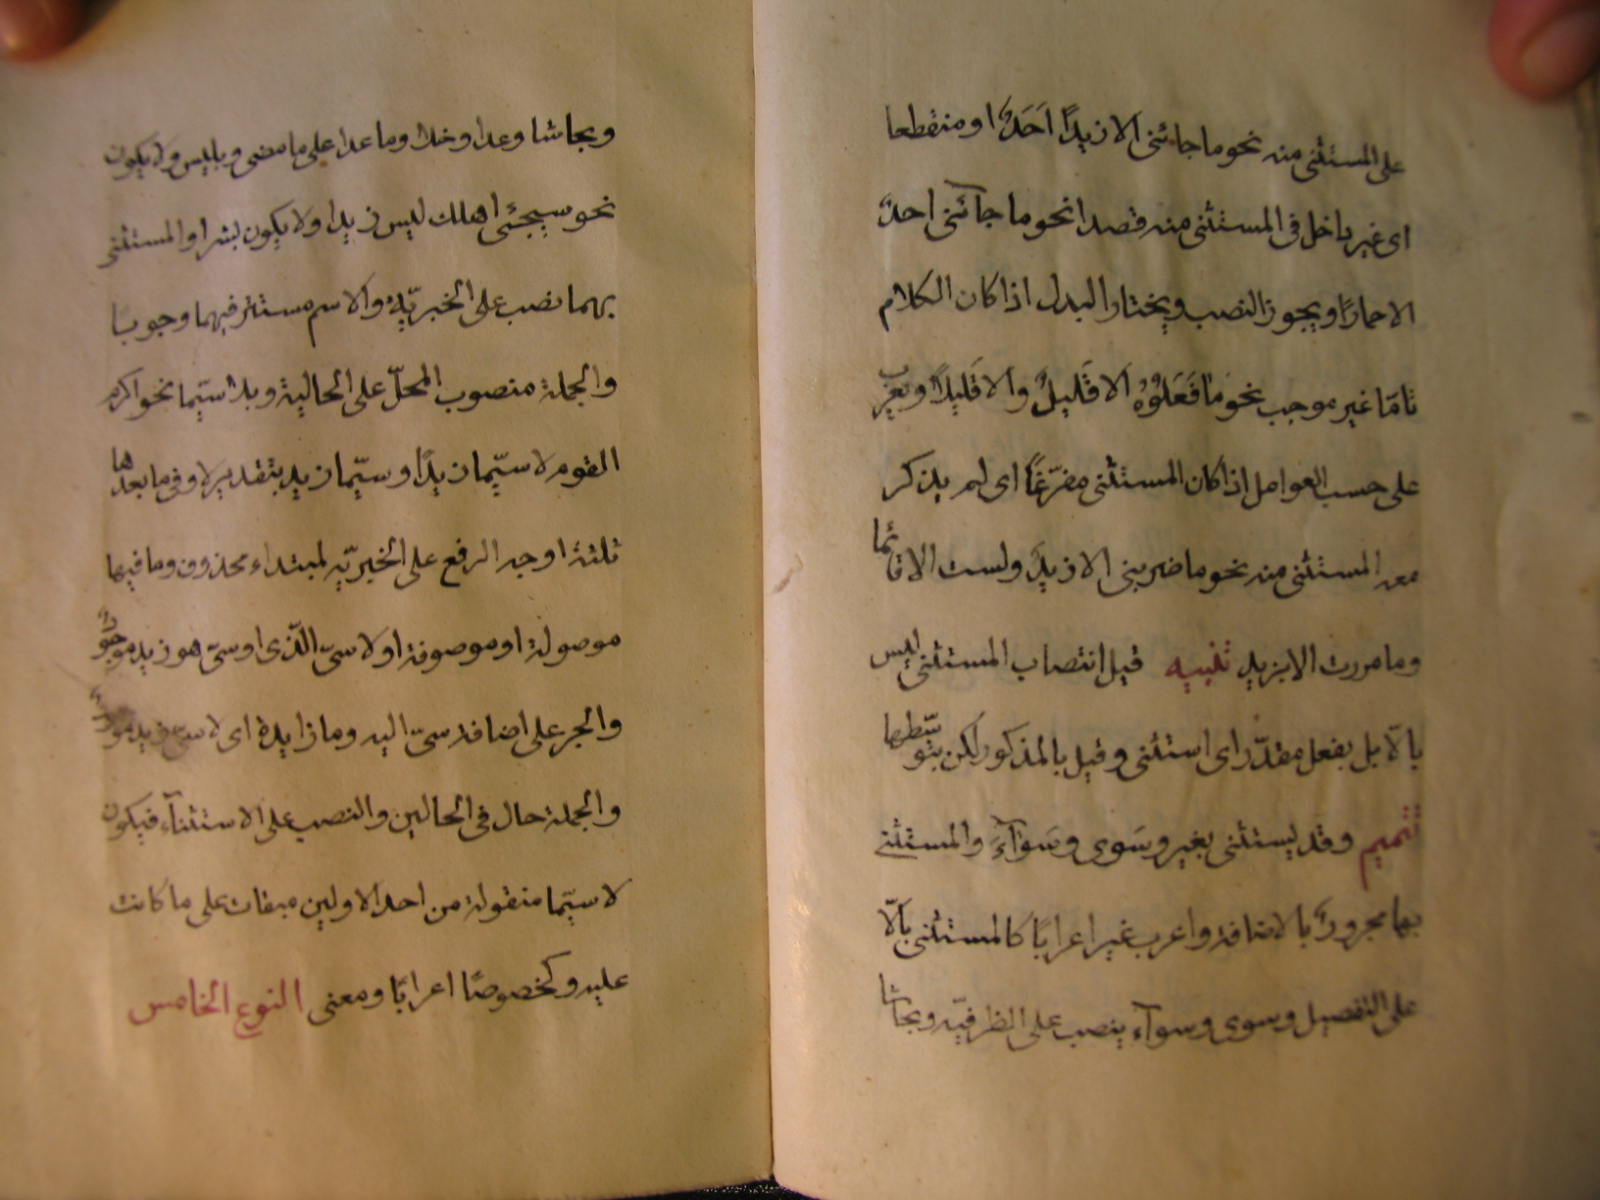 على المستثنى منه نحو ما جائنى الا زيدًا اَحَدٌ او منقطعا
اى غير داخل فى المستثنى منه قصدا نحو ما جآئنى احدٌ
الا حمارًا ويجوز النصب ويختار البدل اذا كان الكلام
تامّا غير موجب نحو مَا فَعَلُوْهُ الا قَليلٌ والا قَليلًا ويعرب
على حسب العوامل اذا كان المستثنى مفرّغًا اى لم يذكر
معه المستثنى منه نحو ما ضربنى الا زيدٌ ولست الا قائما
وما مررت الا بزيد تنبيه قيل انتصاب المستثنى ليس
بالّا بل بفعل مقدّر اى استثنى وقيل بالمذكور لكن بتوسّطها
تتميم وقد يستثنى بغير وسَوى وسَوآءَ والمستثنى
بها مجرورٌ بالاضافة واعرب غير اعرابًا كالمستثنى بالّا
على التفصيل وسوى وسوآء ينصب على الظرفيّه وبحاشا
وبحاشا وعدا وخلا وما عدا على ما مضى وبليس ولا يكون
نحو سيجئى اهلك ليس زيدا ولا يكون بشرا والمستثنى
بهما نصب على الخبريّة والاسم مستتر فيهما وجوبًا
والجملة منصوب المحلّ على الحالية وبلا سيّما نحو اكرم
القوم لا سيّما زيدًا وسيّما زيد بتقدير لا وفى ما بعدها
ثلثة اوجه الرفع على الخبريّه لمبتداء محذوف وما فيها
موصولة او موصوفة او لا سىّ الّذى او سىّ هو زيد موجودٌ
والجر على اضافة سىّ اليه وما زايدة اى لا سىّ زيد موجودٌ
والجملة حال فى الحالين والنصب على الاستثنآء فيكون
لا سيّما منقولة من احد الاولين مبقات على ما كانت
عليه وكخصوصًا اعرابًا ومعنى النوع الخامس